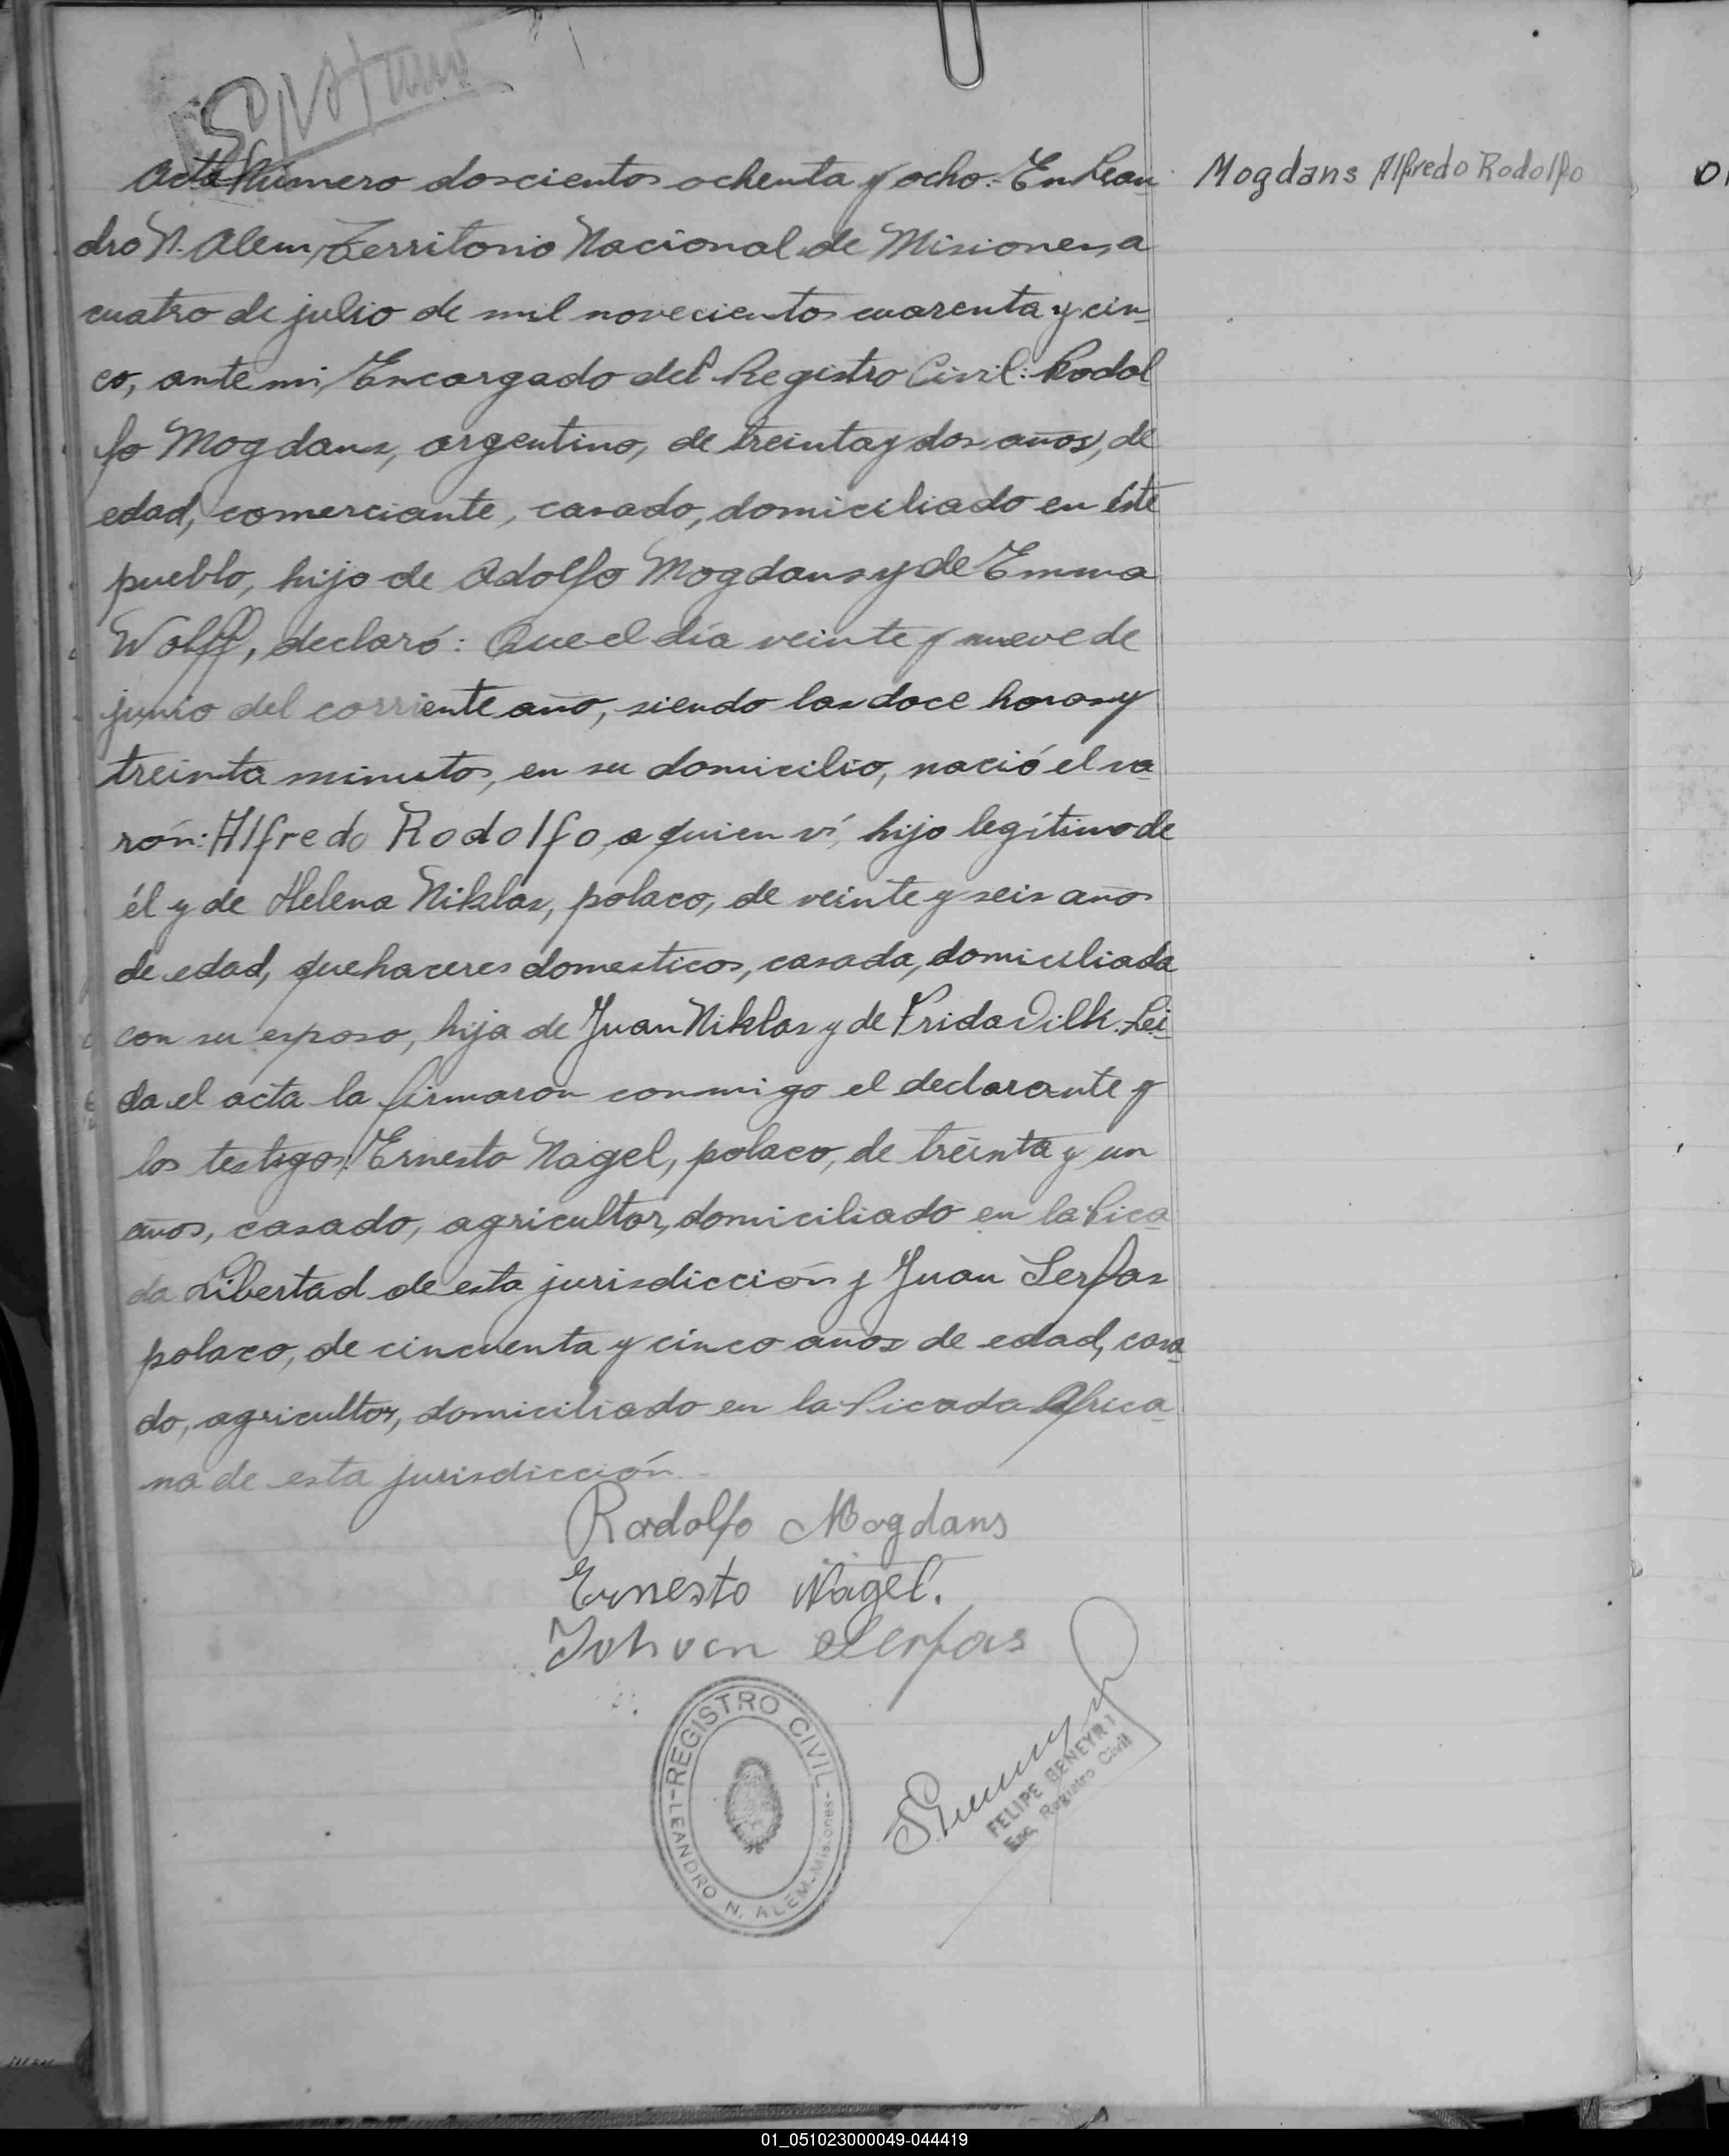 Acta Número doscientos ochenta y ocho.- En Lean-
dro N. Alem, Territorio Nacional de Misiones, a
cuatro de julio de mil novecientos cuarenta y cin-
co, ante mi, Encargado del Registro Civil: Rodol
fo Mogdans, argentino, de treinta y dos años, de
edad, comerciante, casado, domiciliado en éste
pueblo, hijo de Adolfo Mogdans y de Emma
Wolff, declaró: Que el día veinte y nueve de
junio del corriente año, siendo las doce horas y
treinta minutos, en su domicilio, nació el va
rón: Alfredo Rodolfo, a quien ví, hijo legítimo de
él y de Helena Niklas, polaco, de veinte y seis años
de edad, quehaceres domesticos, casada, domiciliada
con su esposo, hija de Juan Niklas y de Frida Dilk. Lei-
da el acta la firmaron conmigo el declarante y
los testigos: Ernesto Nagel, polaco, de treinta y un
años, casado, agricultor, domiciliado en la Pica
da Libertad de esta jurisdicción y Juan Serfas
polaco, de cincuenta y cinco años de edad, casa
do, agricultor, domiciliado en la Picada Africa
na de esta jurisdicción.-
Mogdans Alfredo Rodolfo
Rodolfo Mogdans
Ernesto Nagel.
Serfas
REGISTRO CIVIL
LEANDRO N. ALEM-Misiones-
FELIPE BENEYRI
Enc. Registro Civil
01_051023000049-044419